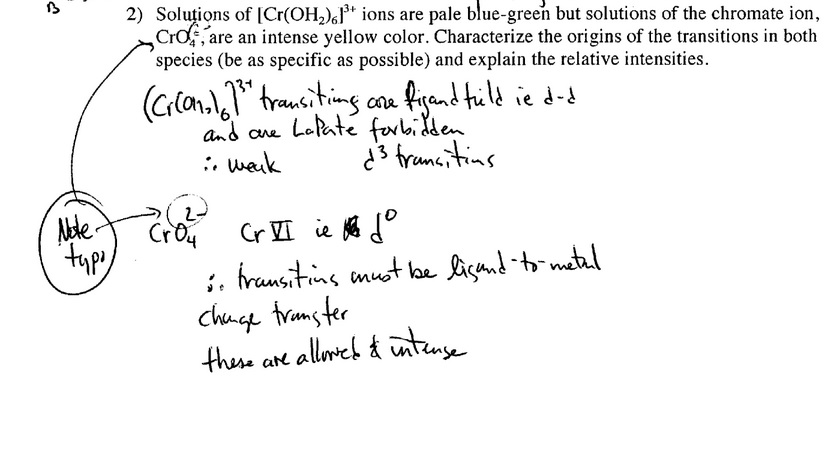 B
2) Solutions of [Cr(OH₂)₆]³⁺ ions are pale blue-green but solutions of the chromate ion,
CrO₄²⁻, are an intense yellow color. Characterize the origins of the transitions in both
species (be as specific as possible) and explain the relative intensities.
(Cr(OH₂)₆]³⁺ transitions are ligand field ie d-d
and are LaPorte forbidden
∴ weak d³ transitions
Note CrO₄²⁻ Cr VI ie d⁰
typo
∴ transitions must be ligand-to-metal
charge transfer
these are allowed & intense